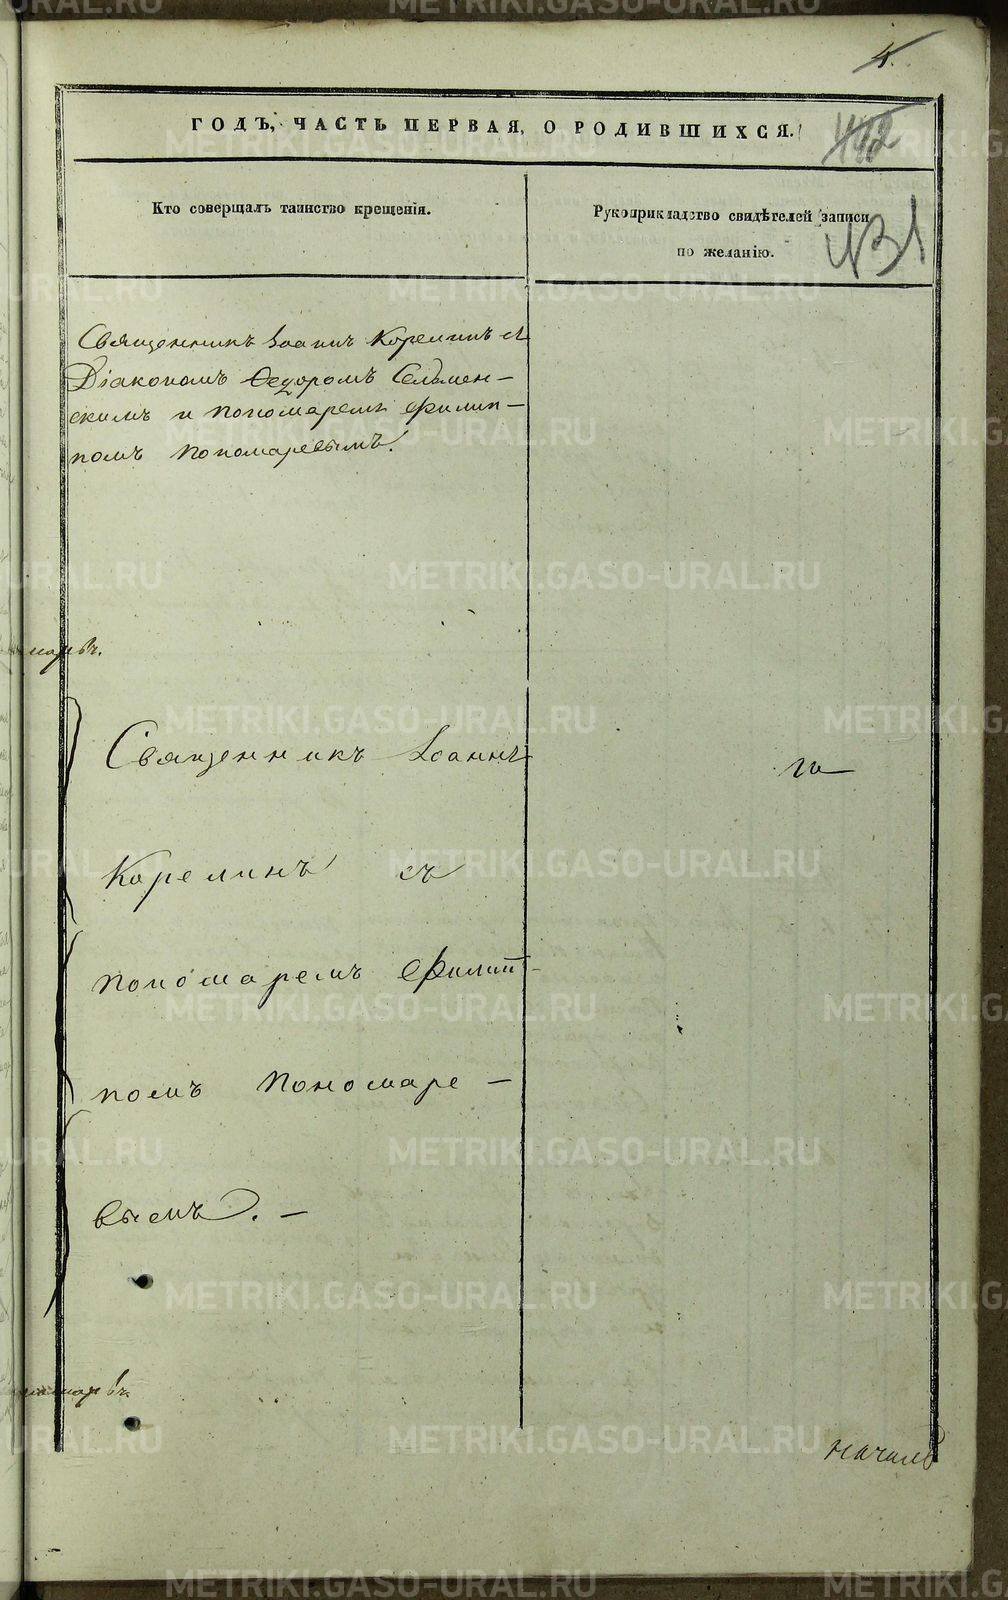 4.
ГОДЪ, ЧАСТЬ ПЕРВАЯ, О РОДИВШИХСЯ.
431
Кто совершалъ таинство крещенія.
Рукоприкладство свидѣтелей записи
по желанію.
Священникъ Іоаннъ Корелинъ съ
Діакономъ Ѳедоромъ Сельмен-
скимъ и пономаремъ Филип-
помъ Пономаревымъ.
Священникъ Іоаннъ
Корелинъ съ
пономаремъ Филип-
помъ Пономаре-
вымъ. -
METRIKI.GASO-URAL.RU